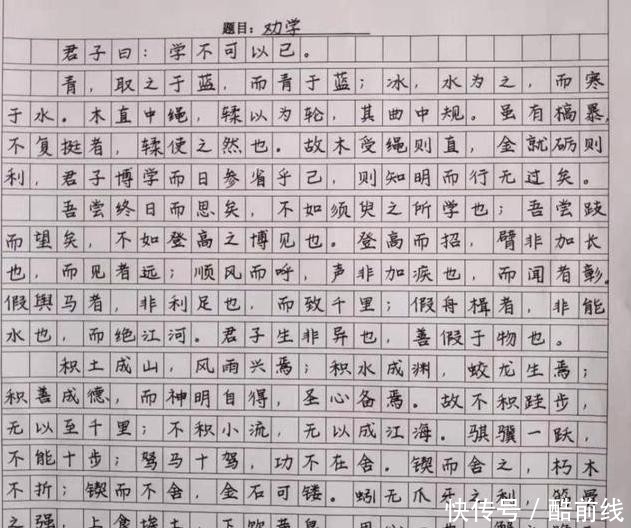 题目：劝学
君子曰：学不可以已。
青，取之于蓝，而青于蓝；冰，水为之，而寒
于水。木直中绳，𫐓以为轮，其曲中规。虽有槁暴，
不复挺者，𫐓使之然也。故木受绳则直，金就砺则
利，君子博学而日参省乎己，则知明而行无过矣。
吾尝终日而思矣，不如须臾之所学也；吾尝跂
而望矣，不如登高之博见也。登高而招，臂非加长
也，而见者远；顺风而呼，声非加疾也，而闻者彰。
假舆马者，非利足也，而致千里；假舟楫者，非能
水也，而绝江河。君子生非异也，善假于物也。
积土成山，风雨兴焉；积水成渊，蛟龙生焉；
积善成德，而神明自得，圣心备焉。故不积跬步，
无以至千里；不积小流，无以成江海。骐骥一跃，
不能十步；驽马十驾，功不在舍。锲而舍之，朽木
不折；锲而不舍，金石可镂。蚓无爪牙之利，筋骨
之强，上食埃土，下饮黄泉
快传号／酷前线